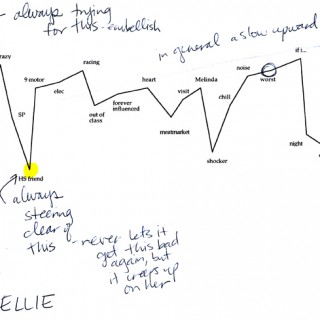 - always trying
for this - embellish
in general a slow upward
if i...
razy
racing
noise
9 motor
heart
Melinda
worst
elec
visit
forever
influenced
chill
SP
out of
class
meatmarket
night
shocker
HS friend
always
steering
clear of
this
- never lets it
get this bad
again, but
it creeps up
on her
ELLIE